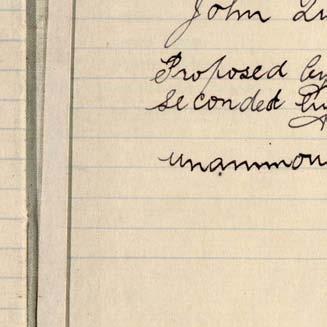 John
Proposed by
seconded by
unanimou